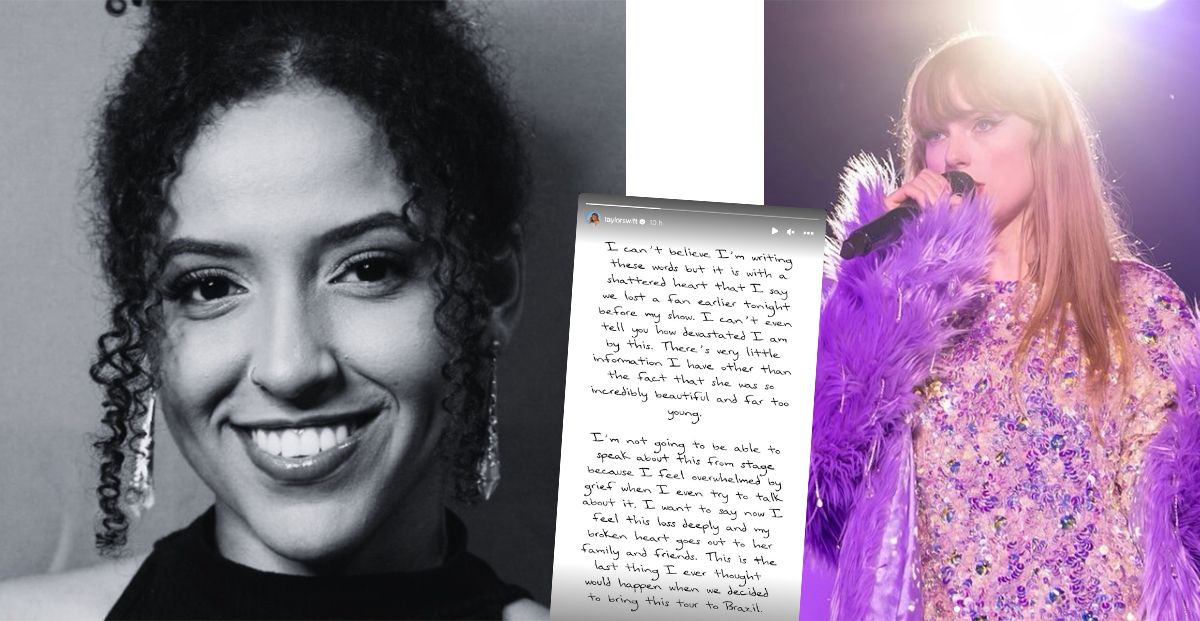 taylorswift 10 h
I can't believe I'm writing
these words but it is with a
shattered heart that I say
we lost a fan earlier tonight
before my show. I can't even
tell you how devastated I am
by this. There's very little
information I have other than
the fact that she was so
incredibly beautiful and far too
young.
I'm not going to be able to
speak about this from stage
because I feel overwhelmed by
grief when I even try to talk
about it. I want to say now I
feel this loss deeply and my
broken heart goes out to her
family and friends. This is the
last thing I ever thought
would happen when we decided
to bring this tour to Brazil.